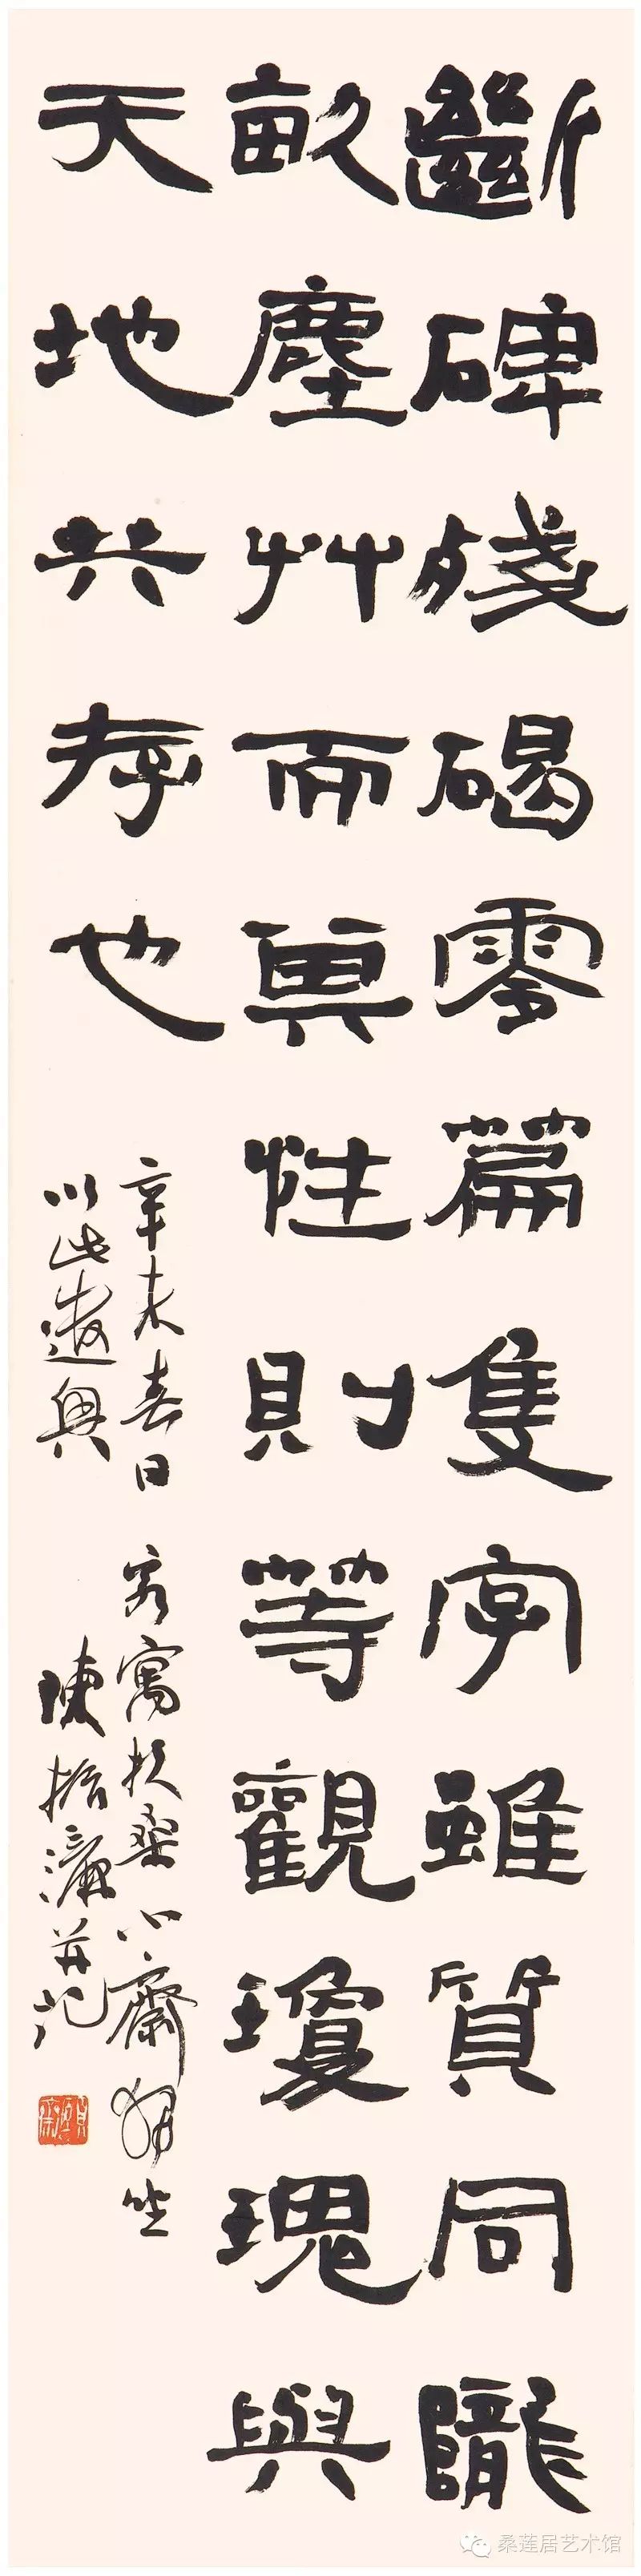 斷碑殘碣零篇隻字雖質同隴
畝塵艸而其性則等觀瓊瑰與
天地共存也
辛未春日 客寓扶桑 心齋 坐
以此遣興 陳振濂并記
桑莲居艺术馆